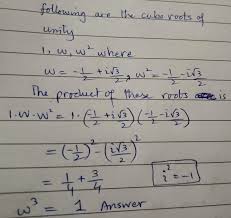 following are the cube roots of
unity
1, w, w² where
w = -1/2 + i√3/2, w² = -1/2 - i√3/2
The product of these roots is
1·w·w² = 1·(-1/2 + i√3/2)(-1/2 - i√3/2)
= (-1/2)² - (i√3/2)²
= 1/4 + 3/4 i² = -1
w³ = 1 Answer